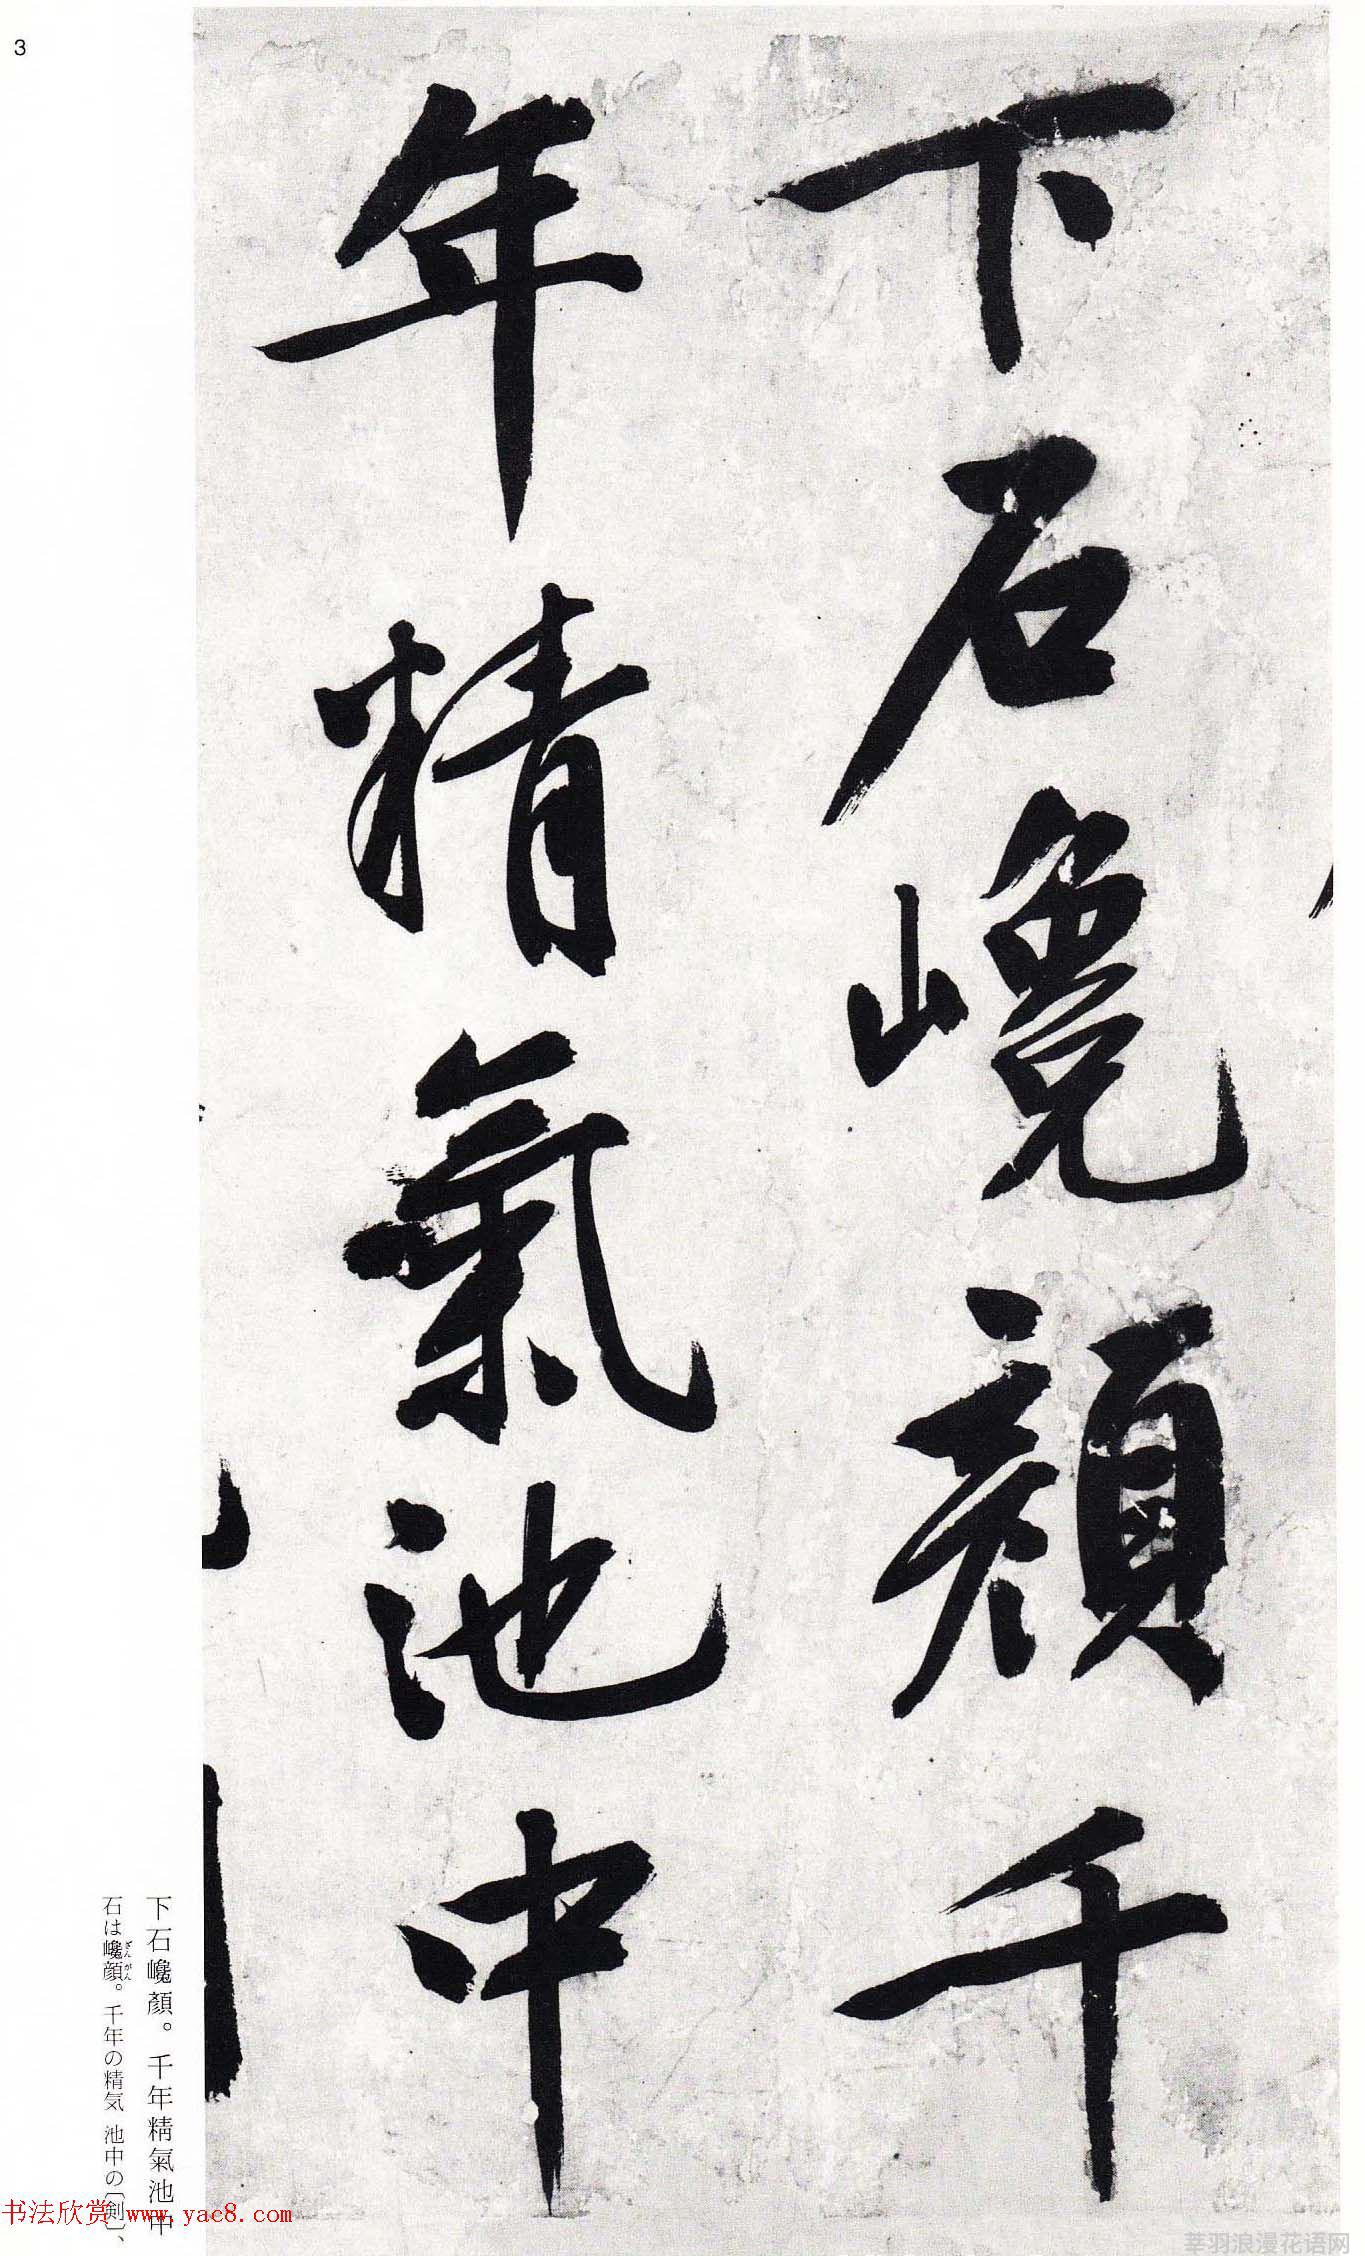 3
下石巉顏千
年精氣池中
下石巉顏。千年精氣池中
石は巉顔。千年の精気 池中の〔剣〕、
ざんがん
书法欣赏 www.yac8.com
莘羽浪漫花语网